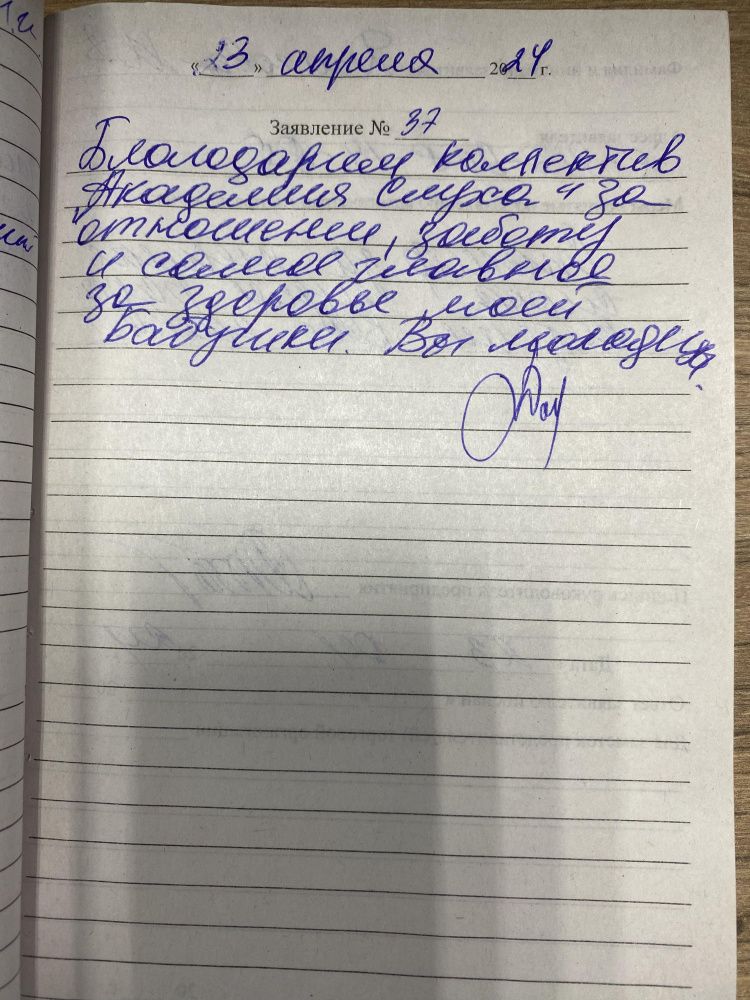 « 23 » апреля 2024 г.
Заявление № 37
Блогодарим коллектив
"Академия слуха" за
отношении, заботу
и самое главное
за здоровье моей
бабушки. Вы молодцы.